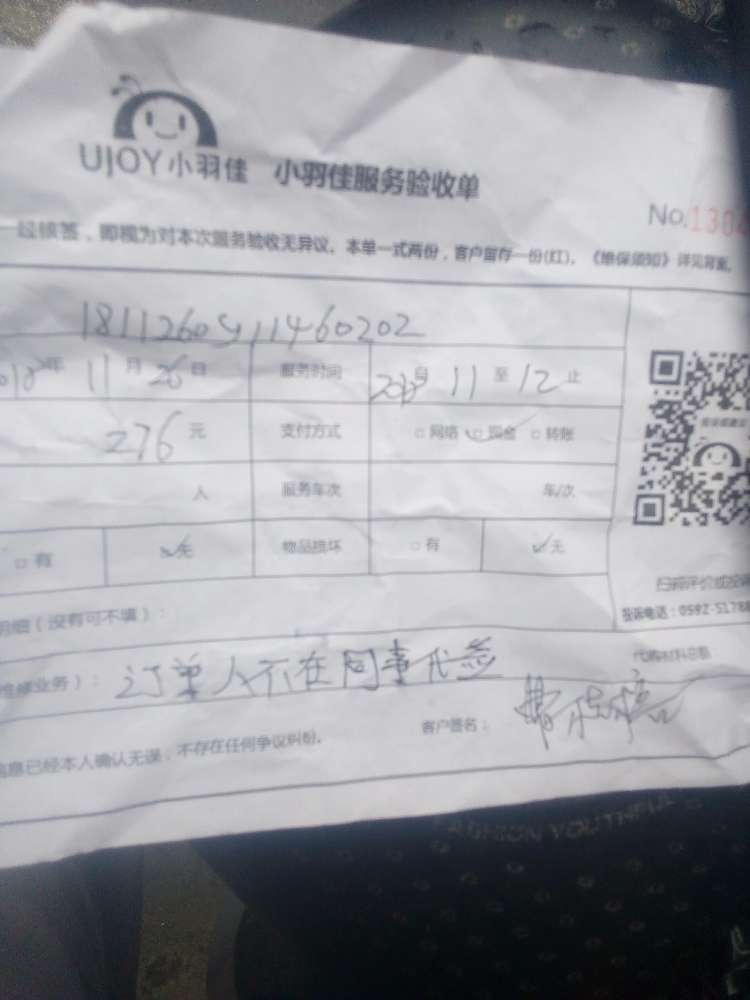 UJOY小羽佳 小羽佳服务验收单
No.1304
一经核签，即视为对本次服务验收无异议。本单一式两份，客户留存一份(红)。《维保须知》详见背面。
年 11 月 26 日 服务时间 自 11 至 12 止
276 元 支付方式 □ 网络 □ 现金 □ 转账
人 服务车次 车/次
□ 有 无 物品损坏 □ 有 无
扫码评价或投
投诉电话：0592-5178
明细（没有可不填）：
代购材料总额
维修业务）：订单人不在同事代签
客户签名：
信息已经本人确认无误，不存在任何争议纠纷。
FASHION YOUTHFUL